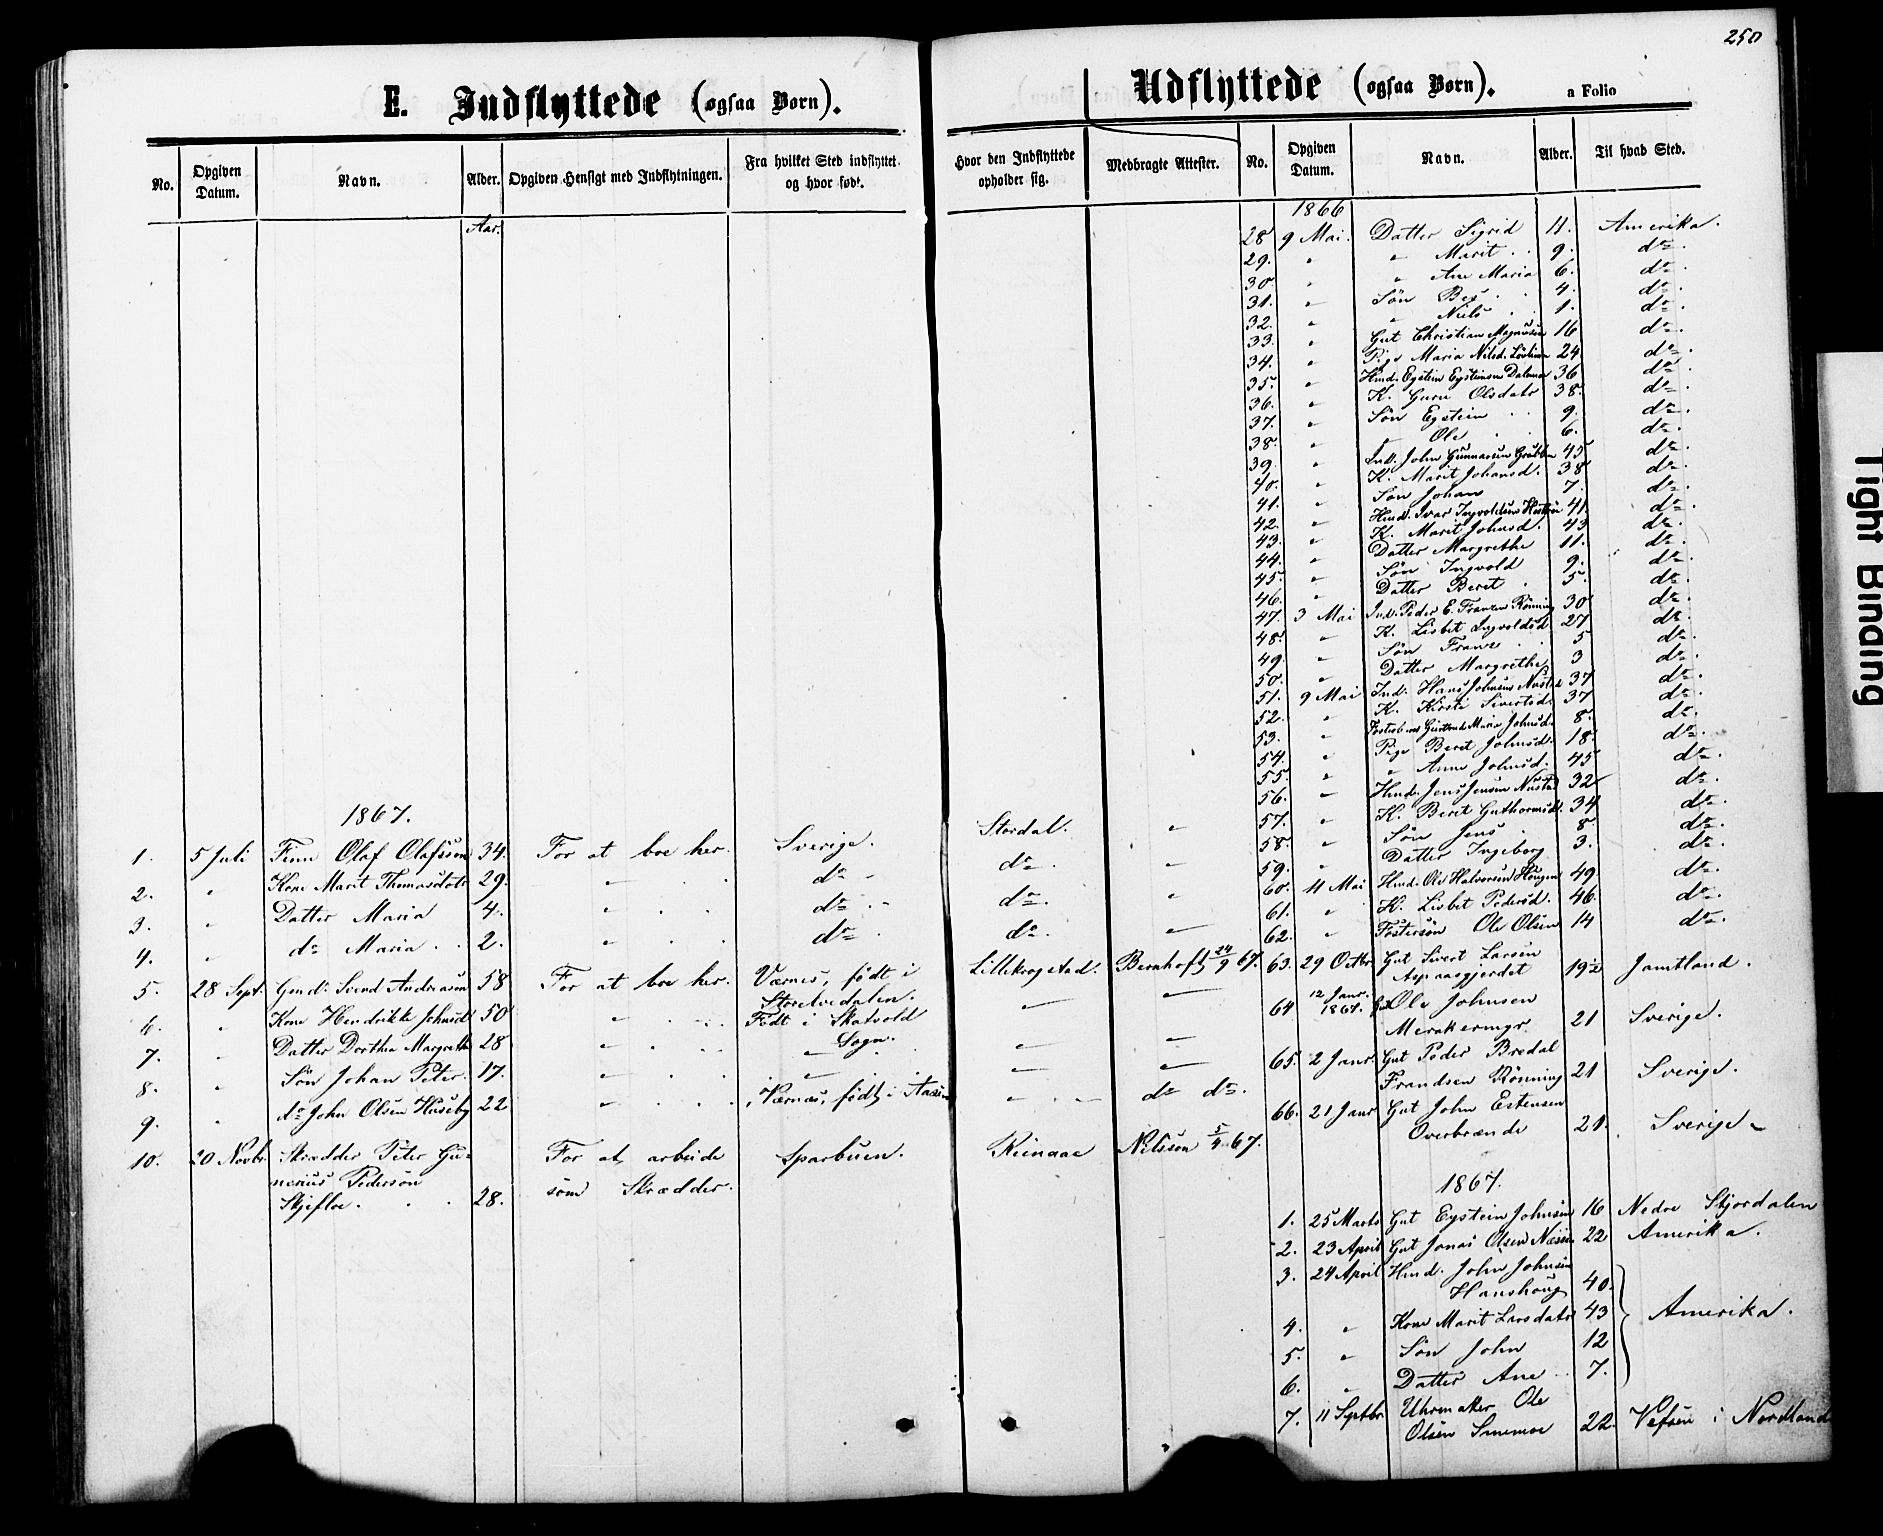 250
E. Indflyttede (ogsaa Børn).
No. Opgiven Datum. Navn. Alder. Opgiven Hensigt med Indflytningen. Fra hvilket Sted indflyttet og hvor født. Hvor den Indflyttede opholder sig. Medbragte Attester.
Aar.
1867.
1. 5 Juli Finn Olaf Olafsson 34. For at boe her. Sverige. Stordal. "
2. " Kone Marit Thomasdatr 29. " do do. "
3. " Datter Maria 4. " do do. "
4. " do Maria 2. " do do. "
5. 28 Sept. Gmd. Svend Andreasen 58 For at boe her. Værnes, født i Lillekrogstad. Bernhoft 24/9 67.
Storelvedalen.
6. " Kone Hendrikke Johnsd 50 " Født i Skatvold " "
Sogn.
7. " Datter Dorthea Margrethe 28 " " " "
8. " Søn Johan Peter. 17. " " " "
9. " do John Olsen Huseby 22 " Værnes, født i Aasen " do do.
10. 20 Novbr. Skrædder Peter Gu-
nerius Pedersen
Skjefloe. 28. For at arbeide
som Skrædder. Sparbuen. Reinaae Nilsson 5/4 67.
Udflyttede (ogsaa Børn). a Folio
No. Opgiven Datum. Navn. Alder. Til hvad Sted.
1866
28 9 Mai. Datter Sigrid 11. Amerika.
29. " " Marit 9. do.
30 " " Ane Maria 6. do.
31. " Søn Bes 4. do.
32. " " Nils 1. do.
33. " Gut Christian Magnussen 16 do.
34. " Pige Maria Nilsd. 24 do.
35. " Hmd. Eystein Eysteinsen 36 do.
36. " K. Guru Olsdatr 38. do.
37. " Søn Eystein 9. do.
38. " " Ole 6. do.
39. " Ind. John Gunnarsen 45 do.
40. " K. Marit Johansd. 38 do.
41. " Søn Johan 7. do.
42. " Hmd. Ivar Ingvoldsen 41. do.
43. " K. Marit Johnsd. 43 do.
44. " Datter Margrethe 11. do.
45. " Søn Ingvold 9. do.
46. " Datter Beret 5. do.
47. 3 Mai Ind. Peder E. Franzen Rönning 30 do.
48. " K. Lisbet Ingvoldsd 27 do.
49. " Søn Franz 5 do.
50. " Datter Margrethe 3 do.
51. 9 Mai Ind. Hans Johnsen 37 do.
52. " K. Kirsti Sivertsd. 37 do.
53. " Maria Johnsd. 8. do.
54. " Pige Beret Johnsd. 18 do.
55. " " Anne Johnsd. 45 do.
56. " Hmd. Jens Jensen 32 do.
57. " K. Beret Guthormsd. 34 do.
58. " Søn Jens 8 do.
59. " Datter Ingeborg 3. do.
60. 11 Mai Hmd. Ole Halvorsen Hougen 49. do.
61. " K. Lisbet Pedersd. 46. do.
62. " Fostersøn Ole Olsen 14 do.
63. 29 Octbr. Gut Sivert Larsen
Aspaasgjerdet 19½ Jamtland.
64 12 Janr. 1867. Gut Ole Johnsen
Merakermgr. 21 Sverige.
65. 2 Janr. Gut Peder Bredal
Frandsen Rönning 21 Sverige.
66. 21 Janr. Gut John Estensen
Overbrænde 21. Sverige
1867.
1. 25 Marts Gut Eystein Johnsen 16 Nedre Stjordalen
2. 23 April Gut Jonas Olsen 22 Amerika.
3. 24 April Hmd. John Johnsen
Hanshoug 40. Amerika.
4. " Kone Marit Larsdatr 43
5. " Søn John 12
6. " Datter Ane 7.
7. 11 Septbr. Uhrmaker Ole
Olsen Smemoe 22. Vefsen i Nordland
Tight Binding